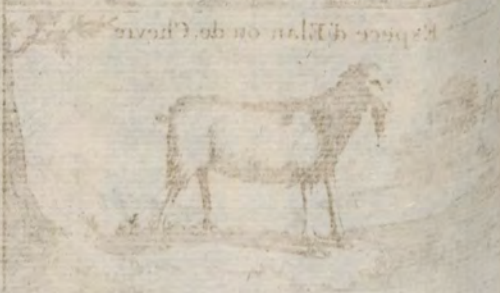 Espece d'Elan ou de Chevre